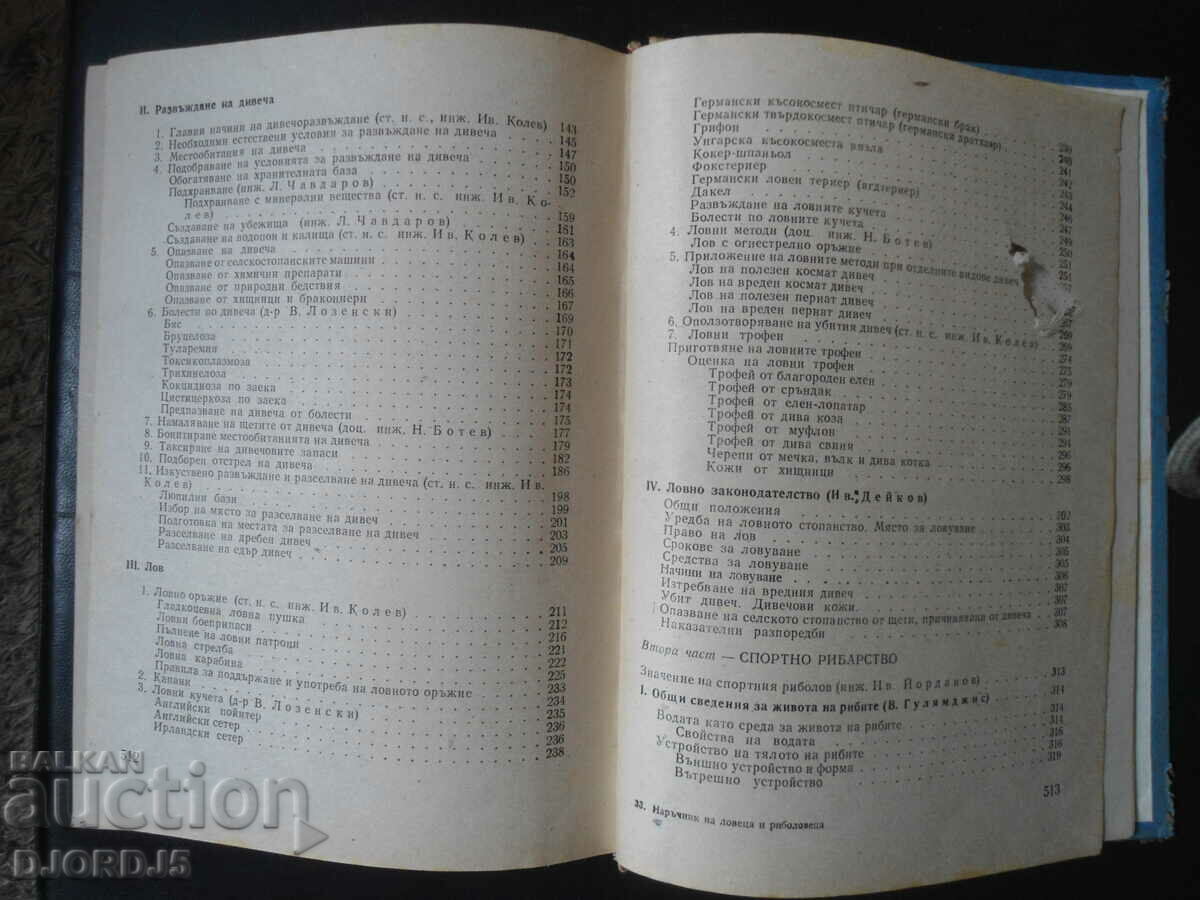 II. Развъждане на дивеча
1. Главни начини на дивечоразвъждане (ст. н. с., инж. Ив. Колев) 143
2. Необходими естествени условия за развъждане на дивеча 145
3. Местообитания на дивеча 147
4. Подобряване на условията за развъждане на дивеча 150
Обогатяване на хранителната база 150
Подхранване (инж. Л. Чавдаров) 152
Подхранване с минерални вещества (ст. н. с. инж. Ив. Ко-
лев) 159
Създаване на убежища (инж. Л. Чавдаров) 161
Създаване на водопои и калища (ст. н. с. инж. Ив. Колев) 163
5. Опазване на дивеча 164
Опазване от селскостопанските машини 164
Опазване от химични препарати 165
Опазване от природни бедствия 166
Опазване от хищници и бракониери 167
6. Болести по дивеча (д-р В. Лозенски) 169
Бяс 170
Бруцелоза 171
Туларемия 172
Токсикоплазмоза 172
Трихинелоза 173
Кокцидиоза по заека 174
Цистицеркоза по заека 174
Предпазване на дивеча от болести 175
7. Намаляване на щетите от дивеча (доц. инж. Н. Ботев) 177
8. Бонитиране местообитанията на дивеча 179
9. Таксиране на дивечовите запаси 182
10. Подборен отстрел на дивеча 186
11. Изкуствено развъждане и разселване на дивеча (ст. н. с. инж. Ив.
Колев) 198
Люпилни бази 199
Избор на място за разселване на дивеч 201
Подготовка на местата за разселване на дивеч 203
Разселване на дребен дивеч 205
Разселване на едър дивеч 209
III. Лов
1. Ловно оръжие (ст. н. с. инж. Ив. Колев) 211
Гладкоцевна ловна пушка 212
Ловни боеприпаси 216
Пълнене на ловни патрони 221
Ловна стрелба 222
Ловна карабина 225
Правила за поддържане и употреба на ловното оръжие 233
2. Капани 234
3. Ловни кучета (д-р В. Лозенски) 235
Английски пойнтер 236
Английски сетер 236
Ирландски сетер 238
512
Германски късокосмест птичар (германски брак)
Германски твърдокосмест птичар (германски дратхаар)
Грифон 240
Унгарска късокосместа визла 241
Кокер-шпаньол
Фокстериер 242
Германски ловен териер (ягдтериер) 243
Дакел 244
Развъждане на ловните кучета 246
Болести по ловните кучета 247
4. Ловни методи (доц. инж. Н. Ботев) 249
Лов с огнестрелно оръжие 250
5. Приложение на ловните методи при отделните видове дивеч 251
Лов на полезен космат дивеч 251
Лов на вреден космат дивеч
Лов на полезен пернат дивеч
Лов на вреден пернат дивеч
6. Оползотворяване на убития дивеч (ст. н. с. инж. Ив. Колев)
7. Ловни трофеи 269
Приготвяне на ловните трофеи 274
Оценка на ловни трофеи 275
Трофей от благороден елен 279
Трофей от сръндак 279
Трофей от елен-лопатар 285
Трофей от дива коза 287
Трофей от муфлон 291
Трофей от дива свиня 294
Черепи от мечка, вълк и дива котка 296
Кожи от хищници 296
298
IV. Ловно законодателство (Ив. Дейков)
Общи положения 302
Уредба на ловното стопанство. Място за ловуване 303
Право на лов 304
Срокове за ловуване 305
Средства за ловуване 305
Начини на ловуване 306
Изтребване на вредния дивеч 307
Убит дивеч. Дивечови кожи 307
Опазване на селското стопанство от щети, причинявани от дивеча 307
Наказателни разпоредби 308
Втора част — СПОРТНО РИБАРСТВО
Значение на спортния риболов (инж. Ив. Йорданов) 313
I. Общи сведения за живота на рибите (В. Гулямджис) 314
Водата като среда за живота на рибите 314
Свойства на водата 314
Устройство на тялото на рибите 316
Външно устройство и форма 316
Вътрешно устройство 319
513
33. Наръчник на ловеца и риболовеца
BALKAN
auction
DJORDJ5